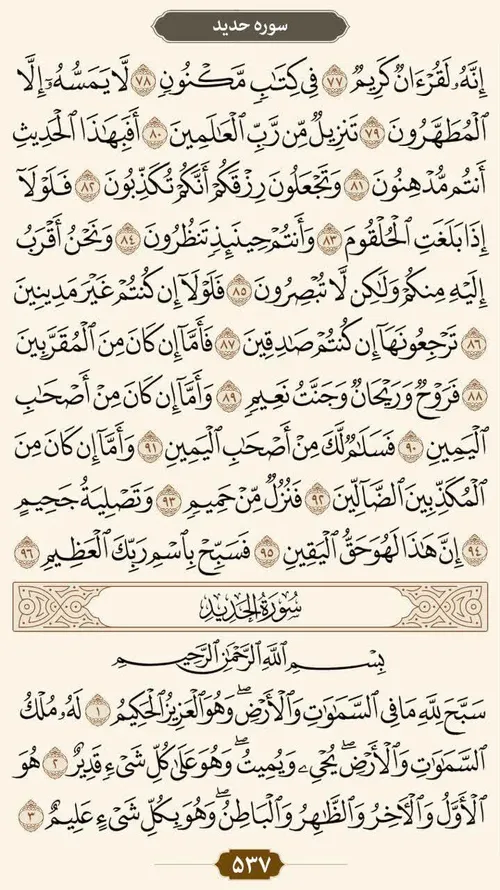 سوره حدید
إِنَّهُۥ لَقُرْءَانٌ كَرِيمٌ ٧٧ فِى كِتَٰبٍ مَّكْنُونٍ ٧٨ لَّا يَمَسُّهُۥٓ إِلَّا
ٱلْمُطَهَّرُونَ ٧٩ تَنزِيلٌ مِّن رَّبِّ ٱلْعَٰلَمِينَ ٨٠ أَفَبِهَٰذَا ٱلْحَدِيثِ
أَنتُم مُّدْهِنُونَ ٨١ وَتَجْعَلُونَ رِزْقَكُمْ أَنَّكُمْ تُكَذِّبُونَ ٨٢ فَلَوْلَآ
إِذَا بَلَغَتِ ٱلْحُلْقُومَ ٨٣ وَأَنتُمْ حِينَئِذٍ تَنظُرُونَ ٨٤ وَنَحْنُ أَقْرَبُ
إِلَيْهِ مِنكُمْ وَلَٰكِن لَّا تُبْصِرُونَ ٨٥ فَلَوْلَآ إِن كُنتُمْ غَيْرَ مَدِينِينَ
٨٦ تَرْجِعُونَهَآ إِن كُنتُمْ صَٰدِقِينَ ٨٧ فَأَمَّآ إِن كَانَ مِنَ ٱلْمُقَرَّبِينَ
٨٨ فَرَوْحٌ وَرَيْحَانٌ وَجَنَّتُ نَعِيمٍ ٨٩ وَأَمَّآ إِن كَانَ مِنْ أَصْحَٰبِ
ٱلْيَمِينِ ٩٠ فَسَلَٰمٌ لَّكَ مِنْ أَصْحَٰبِ ٱلْيَمِينِ ٩١ وَأَمَّآ إِن كَانَ مِنَ
ٱلْمُكَذِّبِينَ ٱلضَّآلِّينَ ٩٢ فَنُزُلٌ مِّنْ حَمِيمٍ ٩٣ وَتَصْلِيَةُ جَحِيمٍ
٩٤ إِنَّ هَٰذَا لَهُوَ حَقُّ ٱلْيَقِينِ ٩٥ فَسَبِّحْ بِٱسْمِ رَبِّكَ ٱلْعَظِيمِ ٩٦
سُورَةُ الحَدِيدِ
بِسْمِ ٱللَّهِ ٱلرَّحْمَٰنِ ٱلرَّحِيمِ
سَبَّحَ لِلَّهِ مَا فِى ٱلسَّمَٰوَٰتِ وَٱلْأَرْضِۖ وَهُوَ ٱلْعَزِيزُ ٱلْحَكِيمُ ١ لَهُۥ مُلْكُ
ٱلسَّمَٰوَٰتِ وَٱلْأَرْضِۖ يُحْىِۦ وَيُمِيتُۖ وَهُوَ عَلَىٰ كُلِّ شَىْءٍ قَدِيرٌ ٢ هُوَ
ٱلْأَوَّلُ وَٱلْءَاخِرُ وَٱلظَّٰهِرُ وَٱلْبَاطِنُۖ وَهُوَ بِكُلِّ شَىْءٍ عَلِيمٌ ٣
۵۳۷